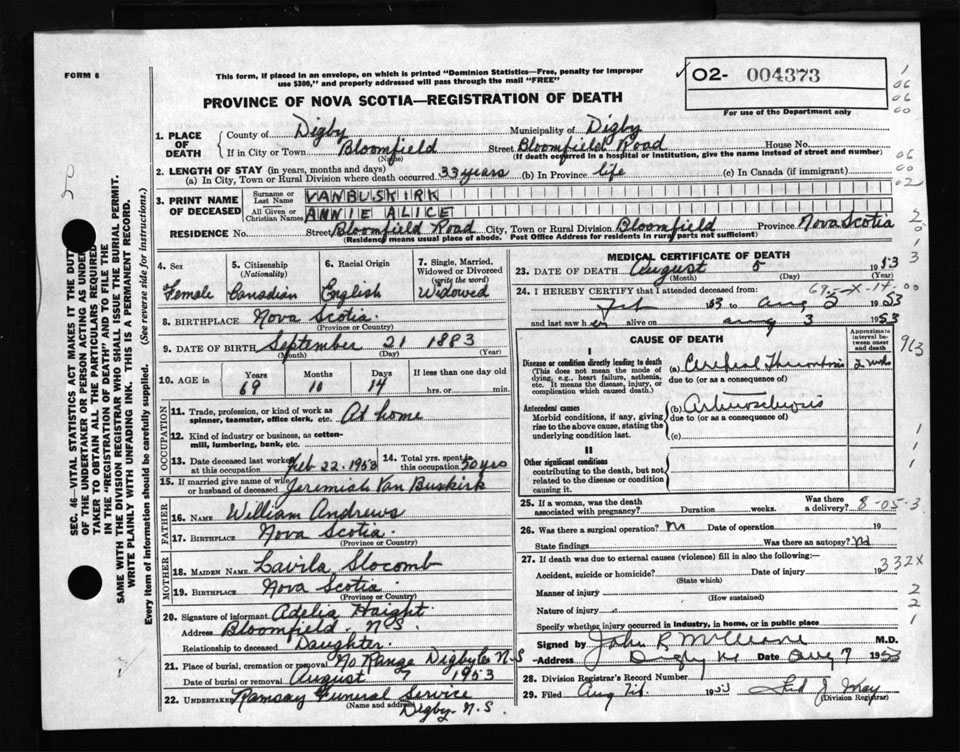 FORM 6
This form, if placed in an envelope, on which is printed "Dominion Statistics—Free, penalty for improper
use $300," and properly addressed will pass through the mail "FREE"
O2- 004373
For use of the Department only
PROVINCE OF NOVA SCOTIA—REGISTRATION OF DEATH
1. PLACE OF DEATH { County of Digby Municipality of Digby
If in City or Town Bloomfield Street Bloomfield Road House No.
(Name) (If death occurred in a hospital or institution, give the name instead of street and number)
2. LENGTH OF STAY (in years, months and days)
(a) In City, Town or Rural Division where death occurred 33 years (b) In Province life (c) In Canada (if immigrant)
3. PRINT NAME OF DECEASED { Surname or Last Name VANBUSKIRK
All Given or Christian Names ANNIE ALICE
RESIDENCE No. Street Bloomfield Road City, Town or Rural Division Bloomfield Province Nova Scotia
(Residence means usual place of abode. Post Office Address for residents in rural parts not sufficient)
4. Sex Female
5. Citizenship (Nationality) Canadian
6. Racial Origin English
7. Single, Married, Widowed or Divorced (write the word) Widowed
8. BIRTHPLACE Nova Scotia
(Province or Country)
9. DATE OF BIRTH September 21 1883
(Month) (Day) (Year)
10. AGE in Years 69 Months 10 Days 14 If less than one day old
hrs. or min.
OCCUPATION
11. Trade, profession, or kind of work as spinner, teamster, office clerk, etc. At home
12. Kind of industry or business, as cotton-mill, lumbering, bank, etc.
13. Date deceased last worked at this occupation Feb 22. 1953 14. Total yrs. spent in this occupation 50 yrs
15. If married give name of wife or husband of deceased Jeremiah Van Buskirk
FATHER
16. NAME William Andrews
17. BIRTHPLACE Nova Scotia
(Province or Country)
MOTHER
18. MAIDEN NAME Lavila Slocomb
19. BIRTHPLACE Nova Scotia
(Province or Country)
20. Signature of informant Adelia Haight
Address Bloomfield N.S.
Relationship to deceased Daughter
21. Place of burial, cremation or removal No Range Digby Co N.S
Date of burial or removal August 7 1953
22. UNDERTAKER Ramsay Funeral Service
(Name and address) Digby. N.S.
MEDICAL CERTIFICATE OF DEATH
23. DATE OF DEATH August 5 1953
(Month) (Day) (Year)
24. I HEREBY CERTIFY that I attended deceased from
Feb 53 to Aug 5 1953
and last saw her alive on Aug 3 1953
CAUSE OF DEATH
Approximate interval between onset and death
I
Disease or condition directly leading to death (a) Cerebral Thrombosis 2 weeks
(This does not mean the mode of dying, e.g., heart failure, asthenia, etc. It means the disease, injury, or complication which caused death.)
due to (or as a consequence of)
Antecedent causes (b) Arteriosclerosis
Morbid conditions, if any, giving rise to the above cause, stating the underlying condition last.
due to (or as a consequence of)
(c)
II
Other significant conditions
contributing to the death, but not related to the disease or condition causing it.
25. If a woman, was the death associated with pregnancy? Duration weeks. Was there a delivery?
26. Was there surgical operation? no Date of operation 19
State findings Was there an autopsy? no
27. If death was due to external causes (violence) fill in also the following:—
Accident, suicide or homicide? Date of injury 19
(State which)
Manner of injury
(How sustained)
Nature of injury
Specify whether injury occurred in industry, in home, or in public place
Signed by John R M.D.
Address Digby Date Aug 7 1953
28. Division Registrar's Record Number
29. Filed Aug 7th 1953
(Division Registrar)
8-05-3
332X
963
SEC. 46—VITAL STATISTICS ACT MAKES IT THE DUTY
OF THE UNDERTAKER OR PERSON ACTING AS UNDER-
TAKER TO OBTAIN ALL THE PARTICULARS REQUIRED
IN THE "REGISTRATION OF DEATH" AND TO FILE THE
SAME WITH THE DIVISION REGISTRAR WHO SHALL ISSUE THE BURIAL PERMIT.
WRITE PLAINLY WITH UNFADING INK. THIS IS A PERMANENT RECORD.
Every item of information should be carefully supplied. (See reverse side for instructions.)